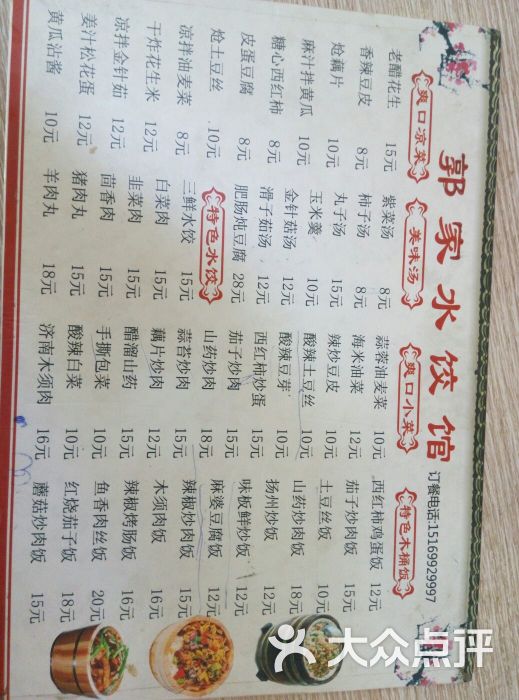 郭家水饺馆
订餐电话:15169929997
爽口凉菜
老醋花生 15元
香辣豆皮 8元
炝藕片 10元
麻汁拌黄瓜 10元
糖心西红柿 8元
皮蛋豆腐 8元
炝土豆丝 10元
凉拌油麦菜 8元
干炸花生米 12元
凉拌金针茹 12元
姜汁松花蛋 12元
黄瓜沾酱 10元
美味汤
紫菜汤 8元
柿子汤 8元
丸子汤 15元
玉米羹 10元
金针茹汤 12元
滑子茹汤 12元
肥肠炖豆腐 28元
特色水饺
三鲜水饺 15元
白菜肉 15元
韭菜肉 15元
茴香肉 15元
猪肉丸 15元
羊肉丸 18元
爽口小菜
蒜蓉油麦菜 10元
海米油菜 12元
辣炒豆皮 10元
酸辣土豆丝 10元
酸辣豆芽 10元
西红柿炒蛋 15元
茄子炒肉 15元
山药炒肉 18元
蒜苔炒肉 15元
藕片炒肉 12元
醋溜山药 15元
手撕包菜 10元
酸辣白菜 10元
济南木须肉 16元
特色木桶饭
西红柿鸡蛋饭 12元
茄子炒肉饭 12元
土豆丝饭 10元
山药炒肉饭 18元
扬州炒饭 12元
味极鲜炒饭 12元
麻婆豆腐饭 12元
辣椒炒肉饭 15元
木须肉饭 16元
辣椒烤肠饭 16元
鱼香肉丝饭 20元
红烧茄子饭 18元
蘑菇炒肉饭 15元
大众点评